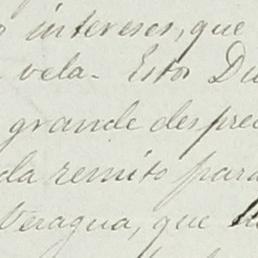 intereses, que
vela. Estos Du
grande despre
da remito para
Veragua, que